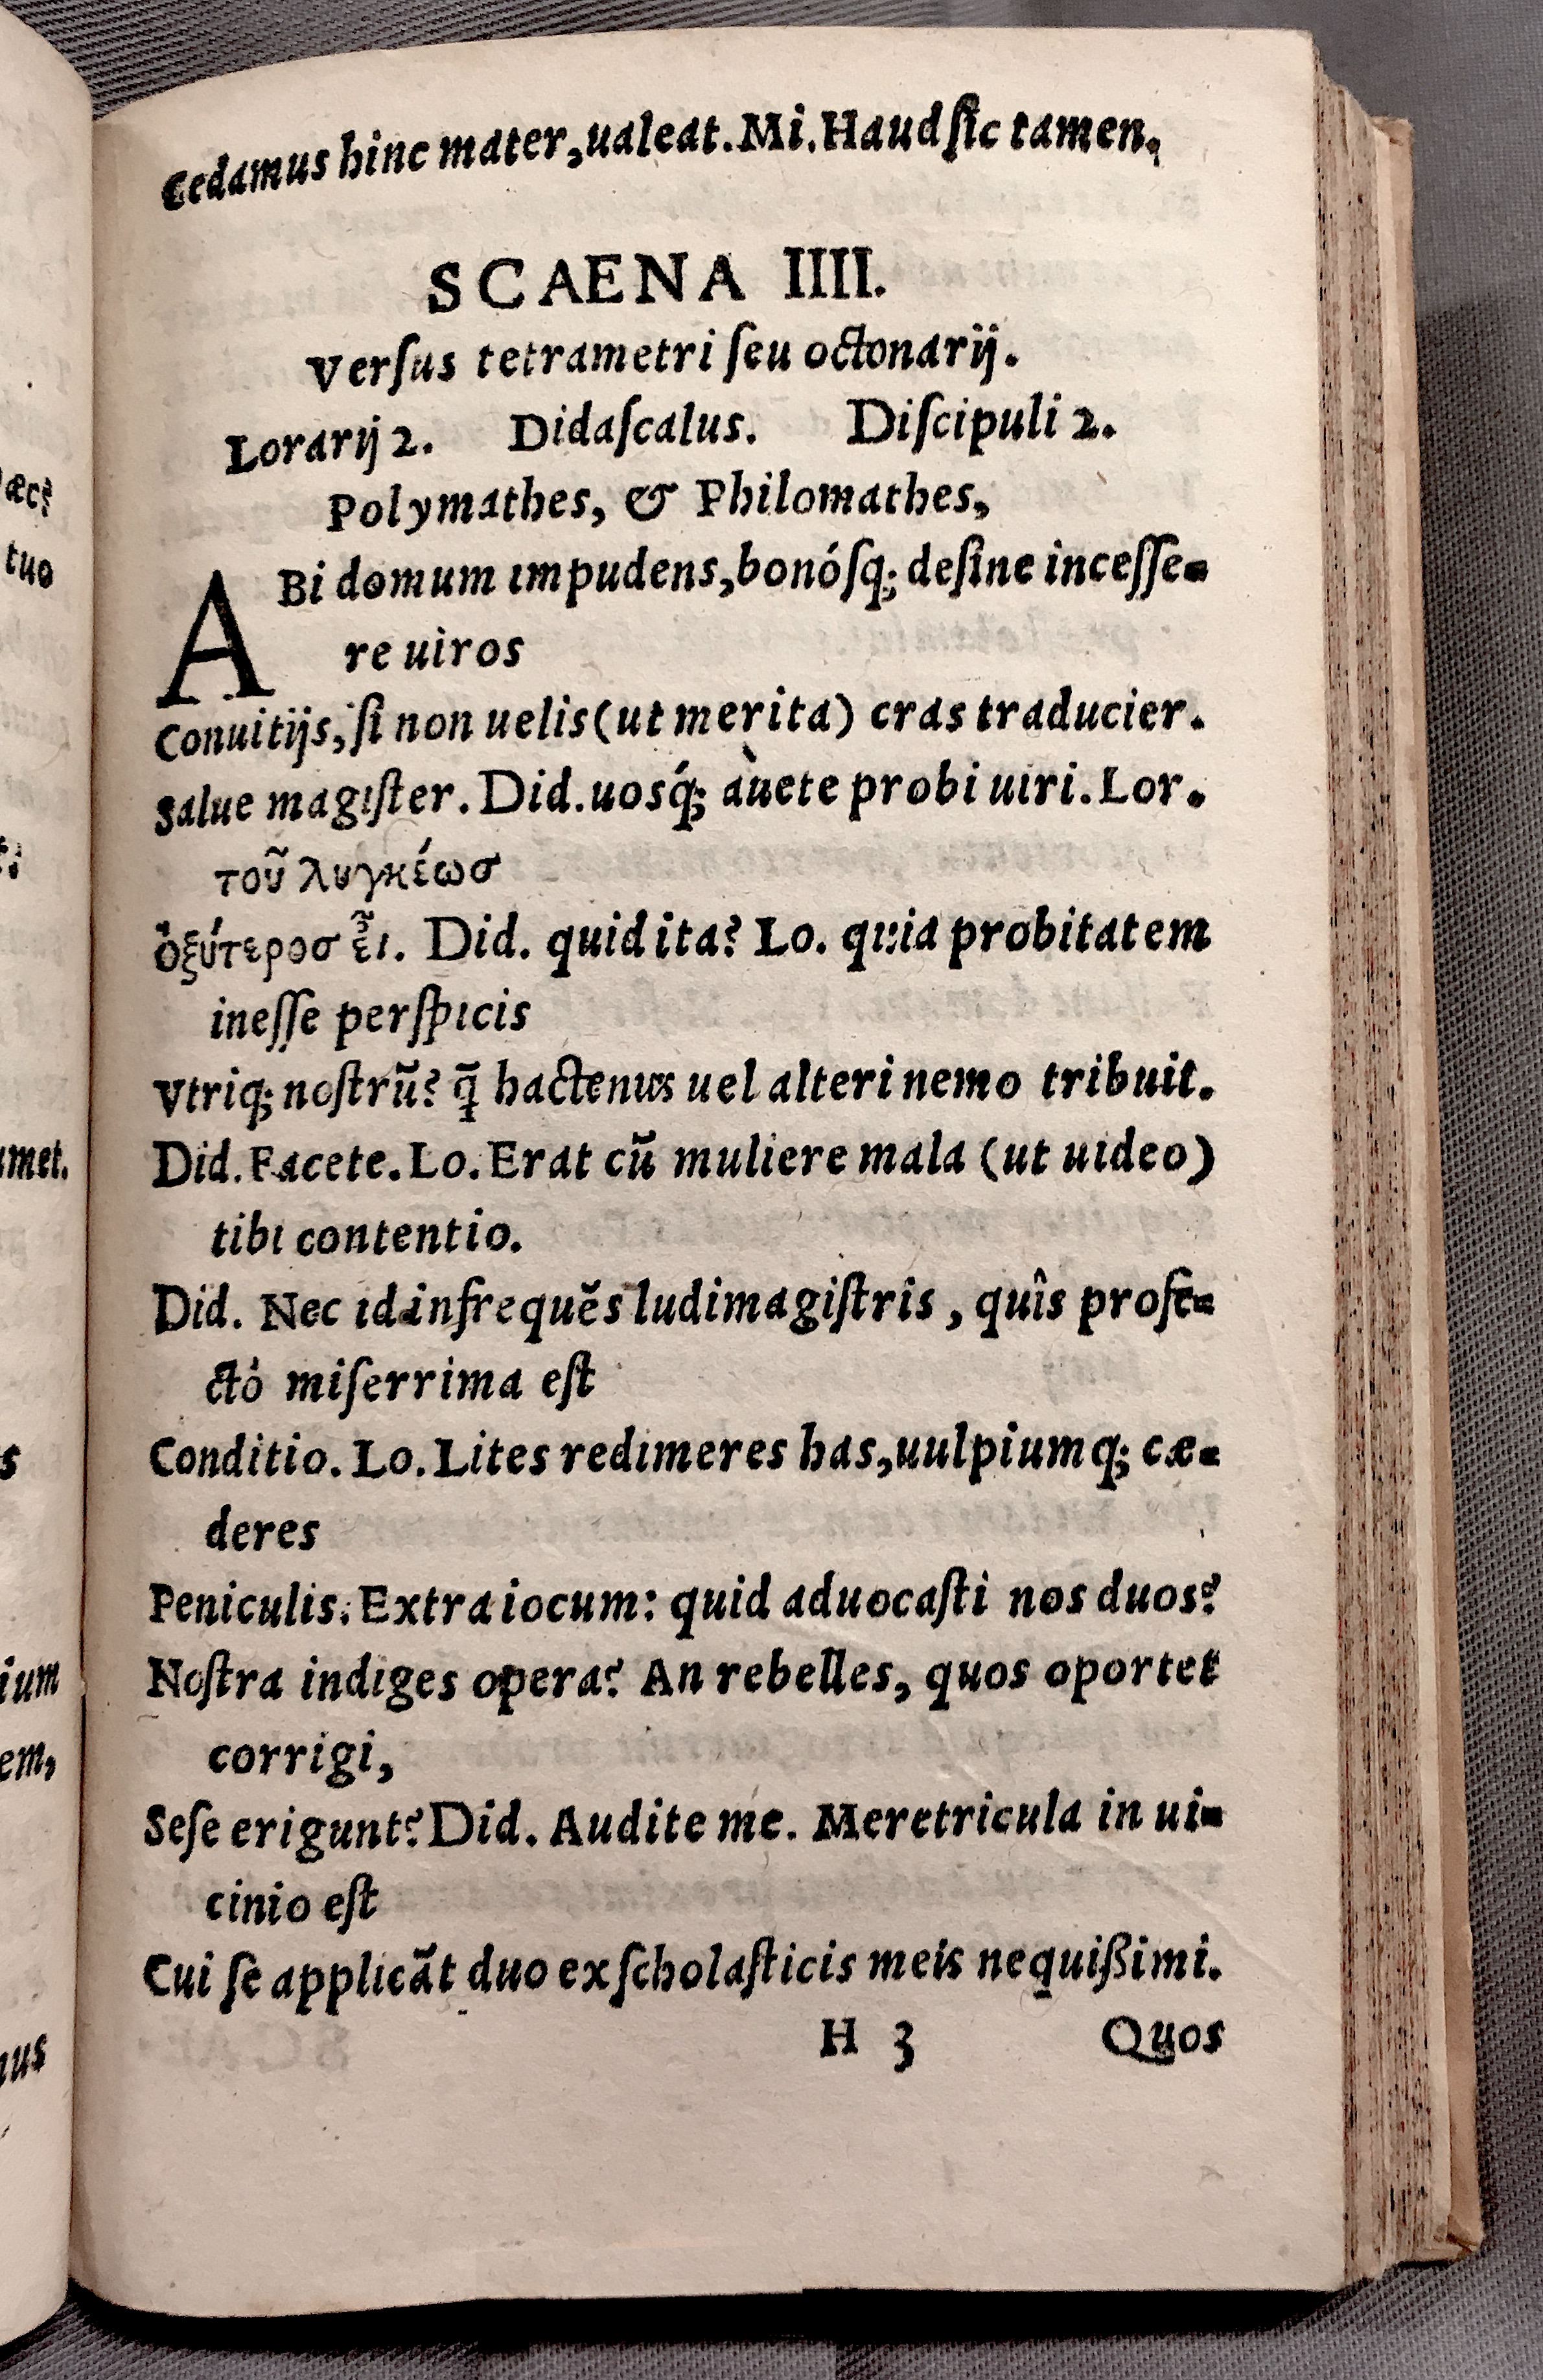 Cedamus hinc mater, ualeat. Mi. Haud ſic tamen.
SCAENA IIII.
Verſus tetrametri ſeu octonarij.
Lorarij 2. Didaſcalus. Diſcipuli 2.
Polymathes, & Philomathes,
ABi domum impudens, bonóſq; deſine inceſſe-
re uiros
Conuitijs, ſi non uelis (ut merita) cras traducier.
Salue magiſter. Did. uosq́; àuete probi uiri. Lor.
τοῦ λυγκέωσ
ὀξύτεροσ εἶ. Did. quid ita? Lo. quia probitatem
ineſſe perſpicis
Vtriq; noſtrũ? q̃ hactenus uel alteri nemo tribuit.
Did. Facete. Lo. Erat cũ muliere mala (ut uideo)
tibi contentio.
Did. Nec id infrequẽs ludimagiſtris, quîs profe-
ctò miſerrima eſt
Conditio. Lo. Lites redimeres has, uulpiumq; cæ-
deres
Peniculis. Extra iocum: quid aduocaſti nos duos?
Noſtra indiges opera? An rebelles, quos oportet
corrigi,
Seſe erigunt? Did. Audite me. Meretricula in ui-
cinio eſt
Cui ſe applicãt duo ex ſcholaſticis meis nequißimi.
H 3 Quos
tuo
met.
s
ium
em,